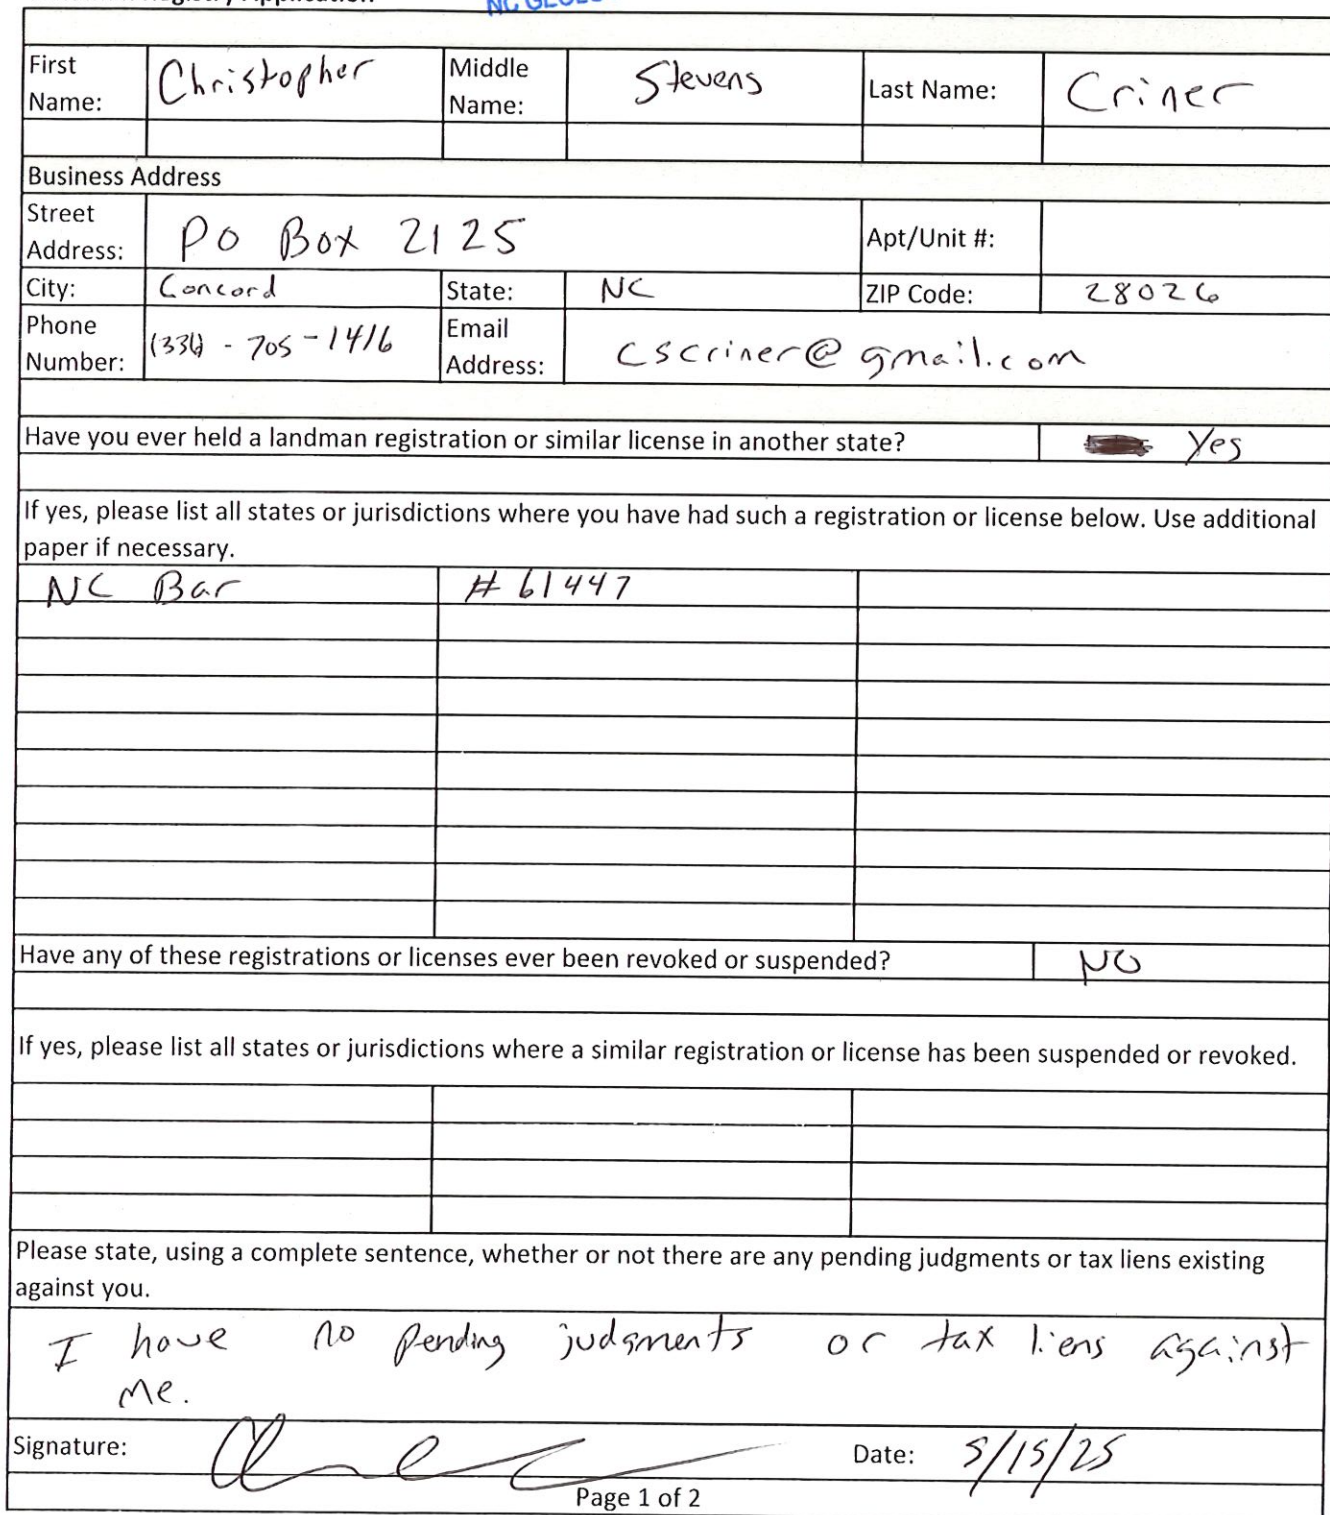 Registry Application
First Name: Christopher Middle Name: Stevens Last Name: Criner
Business Address
Street Address: PO Box 2125 Apt/Unit #:
City: Concord State: NC ZIP Code: 28026
Phone Number: 705-1416 Email Address: cscriner@gmail.com
Have you ever held a landman registration or similar license in another state? Yes
If yes, please list all states or jurisdictions where you have had such a registration or license below. Use additional
paper if necessary.
NC Bar #61447
Have any of these registrations or licenses ever been revoked or suspended? NO
If yes, please list all states or jurisdictions where a similar registration or license has been suspended or revoked.
Please state, using a complete sentence, whether or not there are any pending judgments or tax liens existing
against you.
I have no pending judgments or tax liens against
me.
Signature: Date: 5/15/25
Page 1 of 2